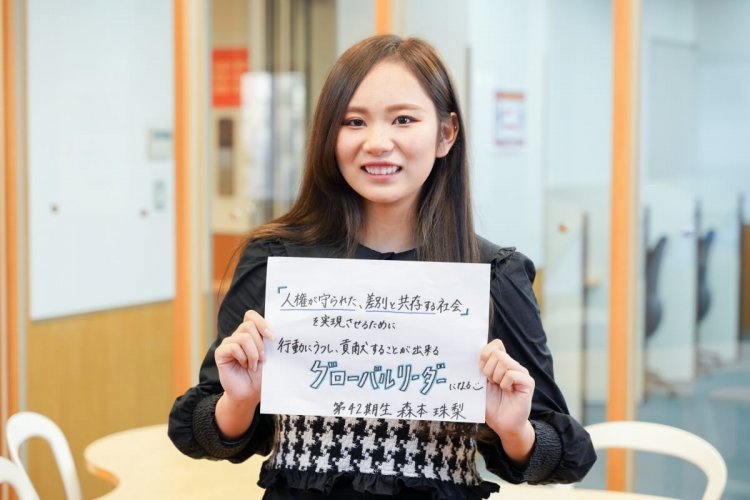 「人権が守られた、差別と共存する社会」
を実現させるために
行動にうつし、貢献することが出来る
グローバルリーダーになる
第42期生 森本 珠梨